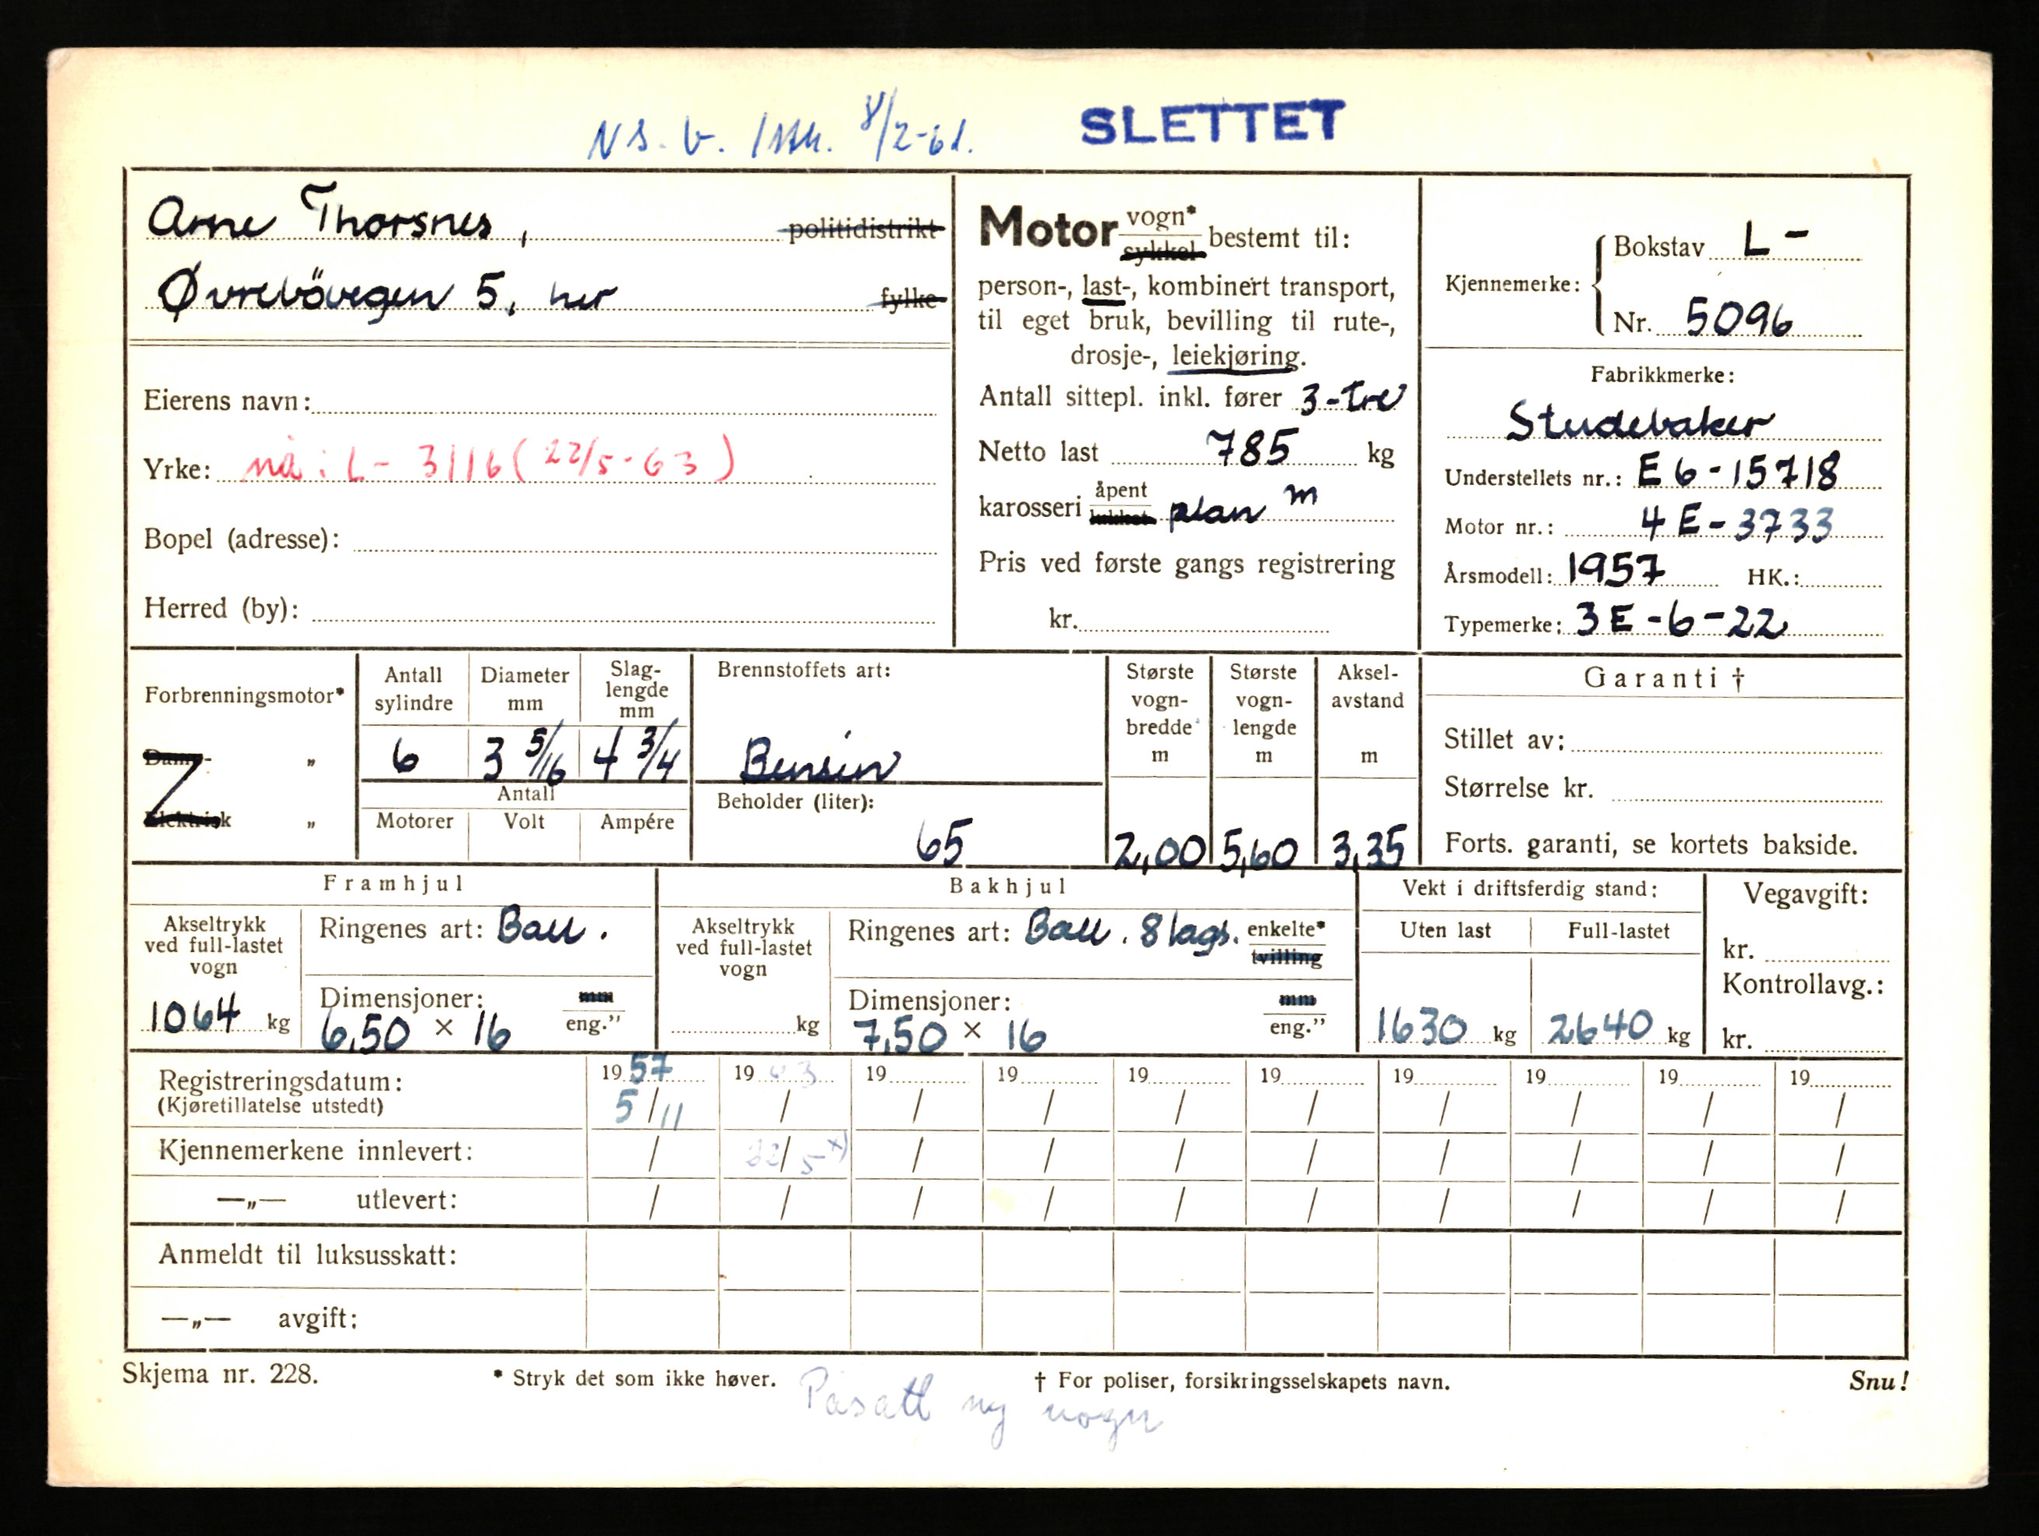 8/2-61. SLETTET
Arne Thorsnes, politidistrikt
Øvrebövegen 5, her fylke
Eierens navn:
Yrke: nå: L- 3116 (22/5-63)
Bopel (adresse):
Herred (by):
Motor vogn* sykkel bestemt til:
person-, last-, kombinert transport,
til eget bruk, bevilling til rute-,
drosje-, leiekjøring.
Antall sittepl. inkl. fører 3-tre
Netto last 785 kg
karosseri åpent lukket plan m
Pris ved første gangs registrering
kr.
Kjennemerke: Bokstav L-
Nr. 5096
Fabrikkmerke:
Studebaker
Understellets nr.: E6-15718
Motor nr.: 4E-3733
Årsmodell: 1957 HK.:
Typemerke: 3E-6-22
Forbrenningsmotor*
Damp- „
Elektrisk „
Antall sylindre
6
Diameter mm
3 5/16
Slag-
lengde
mm
4 3/4
Antall
Motorer Volt Ampére
Brennstoffets art:
Bensin
Beholder (liter):
65
Største
vogn-
bredde
m
2,00
Største
vogn-
lengde
m
5,60
Aksel-
avstand
m
3,35
Garanti †
Stillet av:
Størrelse kr.
Forts. garanti, se kortets bakside.
Framhjul
Akseltrykk
ved full-lastet
vogn
1064 kg
Ringenes art: Ball.
Dimensjoner: mm
6,50 × 16 eng."
Bakhjul
Akseltrykk
ved full-lastet
vogn
kg
Ringenes art: Ball. 8 lags. enkelte* tvilling
Dimensjoner: mm
7,50 × 16 eng."
Vekt i driftsferdig stand:
Uten last Full-lastet
1630 kg 2640 kg
Vegavgift:
kr.
Kontrollavg.:
kr.
Registreringsdatum: 1957 1963 19 19 19 19 19 19 19 19
(Kjøretillatelse utstedt) 5/11 / / / / / / / / /
Kjennemerkene innlevert: / 22/5 x) / / / / / / / /
—„— utlevert: / / / / / / / / / /
Anmeldt til luksusskatt:
—„— avgift:
Skjema nr. 228. * Stryk det som ikke høver. † For poliser, forsikringsselskapets navn. Snu!
Påsatt ny vogn